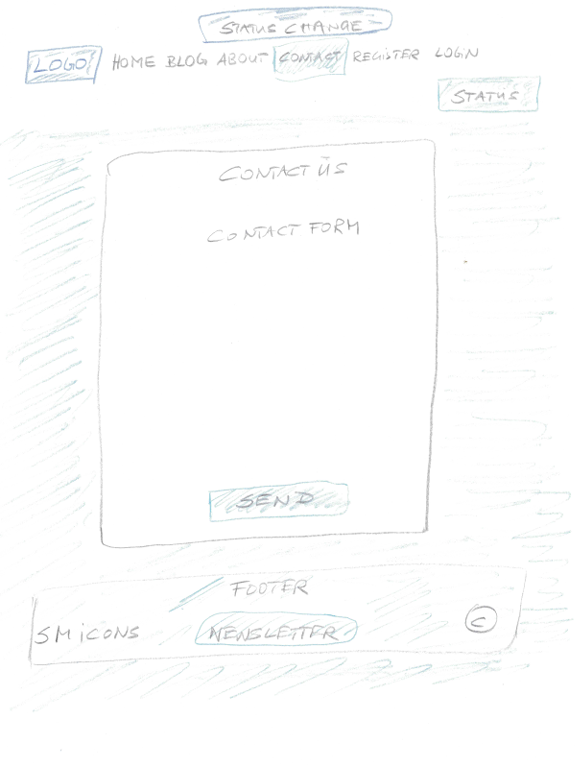 STATUS CHANGE
LOGO HOME BLOG ABOUT CONTACT REGISTER LOGIN
STATUS
CONTACT US
CONTACT FORM
SEND
FOOTER
SM iCONS NEWSLETTER C